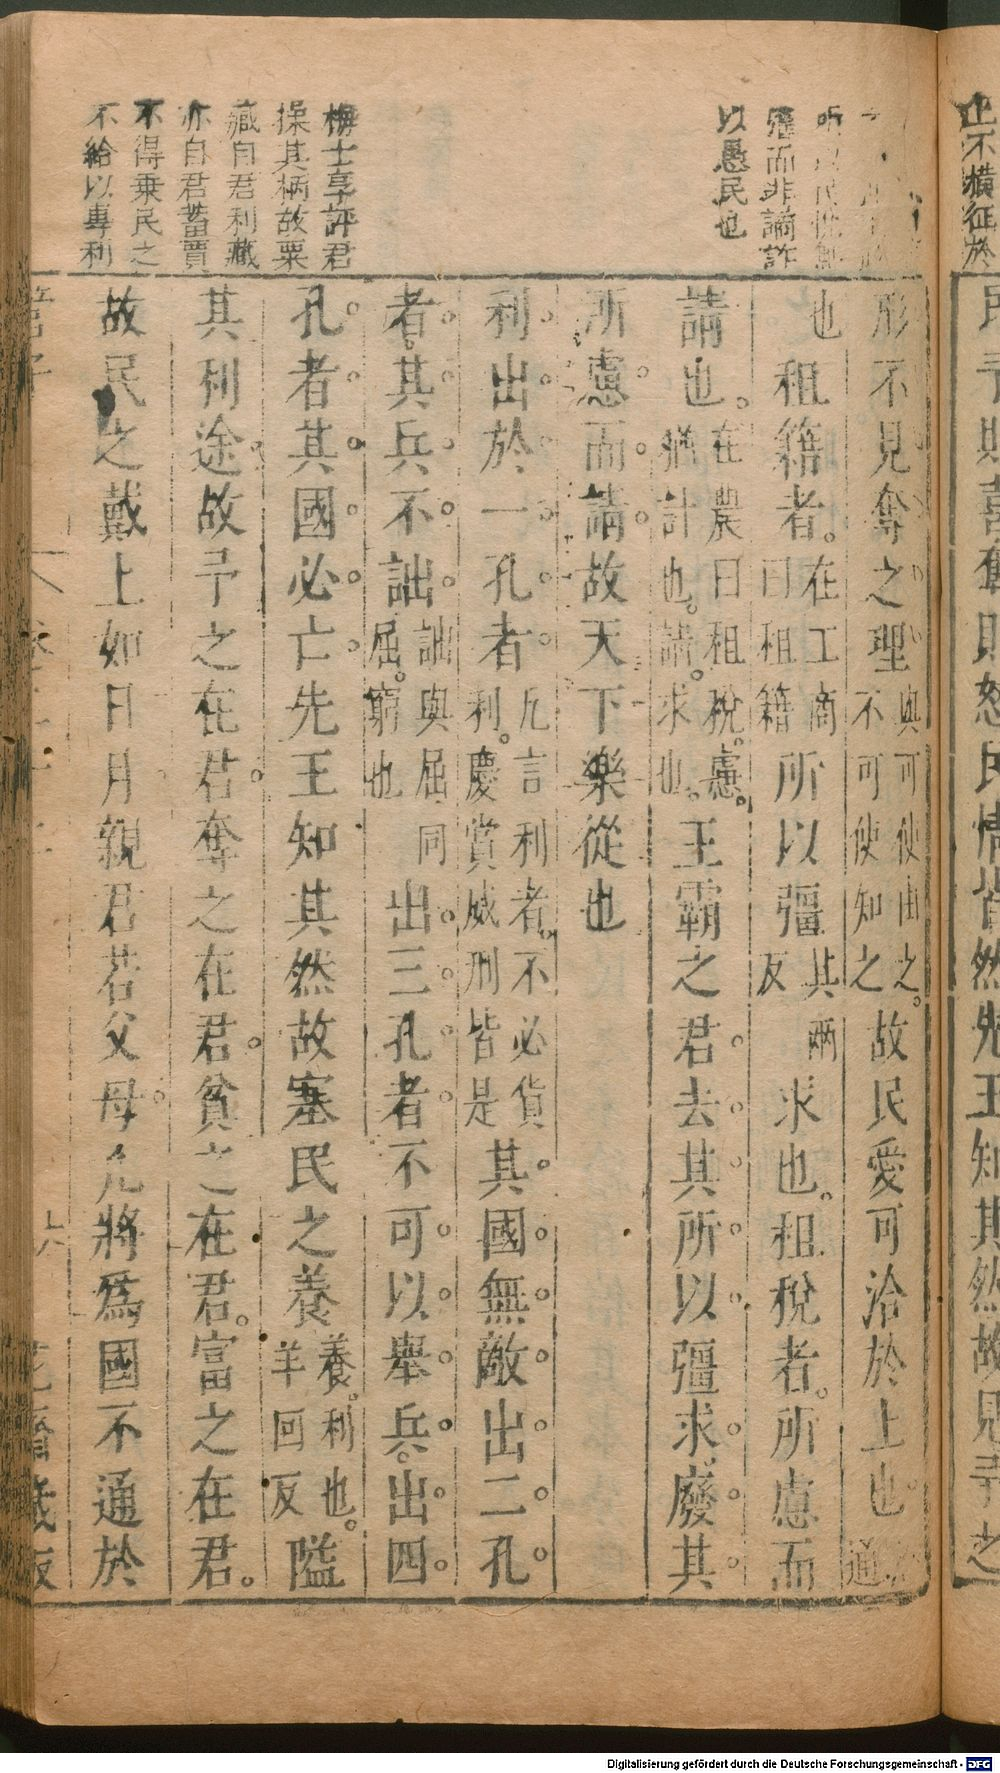 止不橫征於
民予則喜奪則怒民情皆然先王知其然故見予之
彊而非譎詐
以愚民也
形不見奪之理與可使由之。不可使知之故民愛可洽於上也
也租籍者。在工商曰租籍所以彊其兩反求也。租稅者。所慮而
請也。在農曰租稅。慮。猶計也。請。求也。王霸之君去其所以彊求廢其
所慮而請故天下樂從也
利出於一孔者凡言利者。不必貨利。慶賞威刑皆是其國無敵出二孔
者。其兵不詘詘與屈同屈。窮也出三孔者不可以舉兵。出四
孔者其國必亡先王知其然故塞民之養養。利也。羊回反隘
其利途故予之在君奪之在君貧之在君。富之在君。
故民之戴上如日月親君若父母凡將爲國不通於
梅士享評君
操其柄故粟
藏自君利藏
亦自君蓄賈
不得乘民之
不給以專利
管子
六
花齋藏板
Digitalisierung gefördert durch die Deutsche Forschungsgemeinschaft - DFG